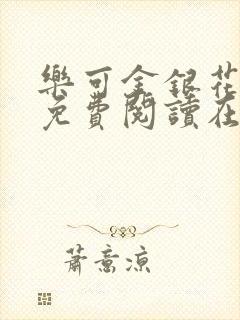 樂可金銀花
免費閱讀在
蕭意涼